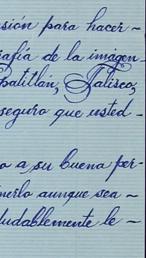 sión para hacer-
rafía de la imagen-
Zapatitlán, Jalisco,
seguro que usted-
o a su buena per-
nerlo aunque sea-
dudablemente le-